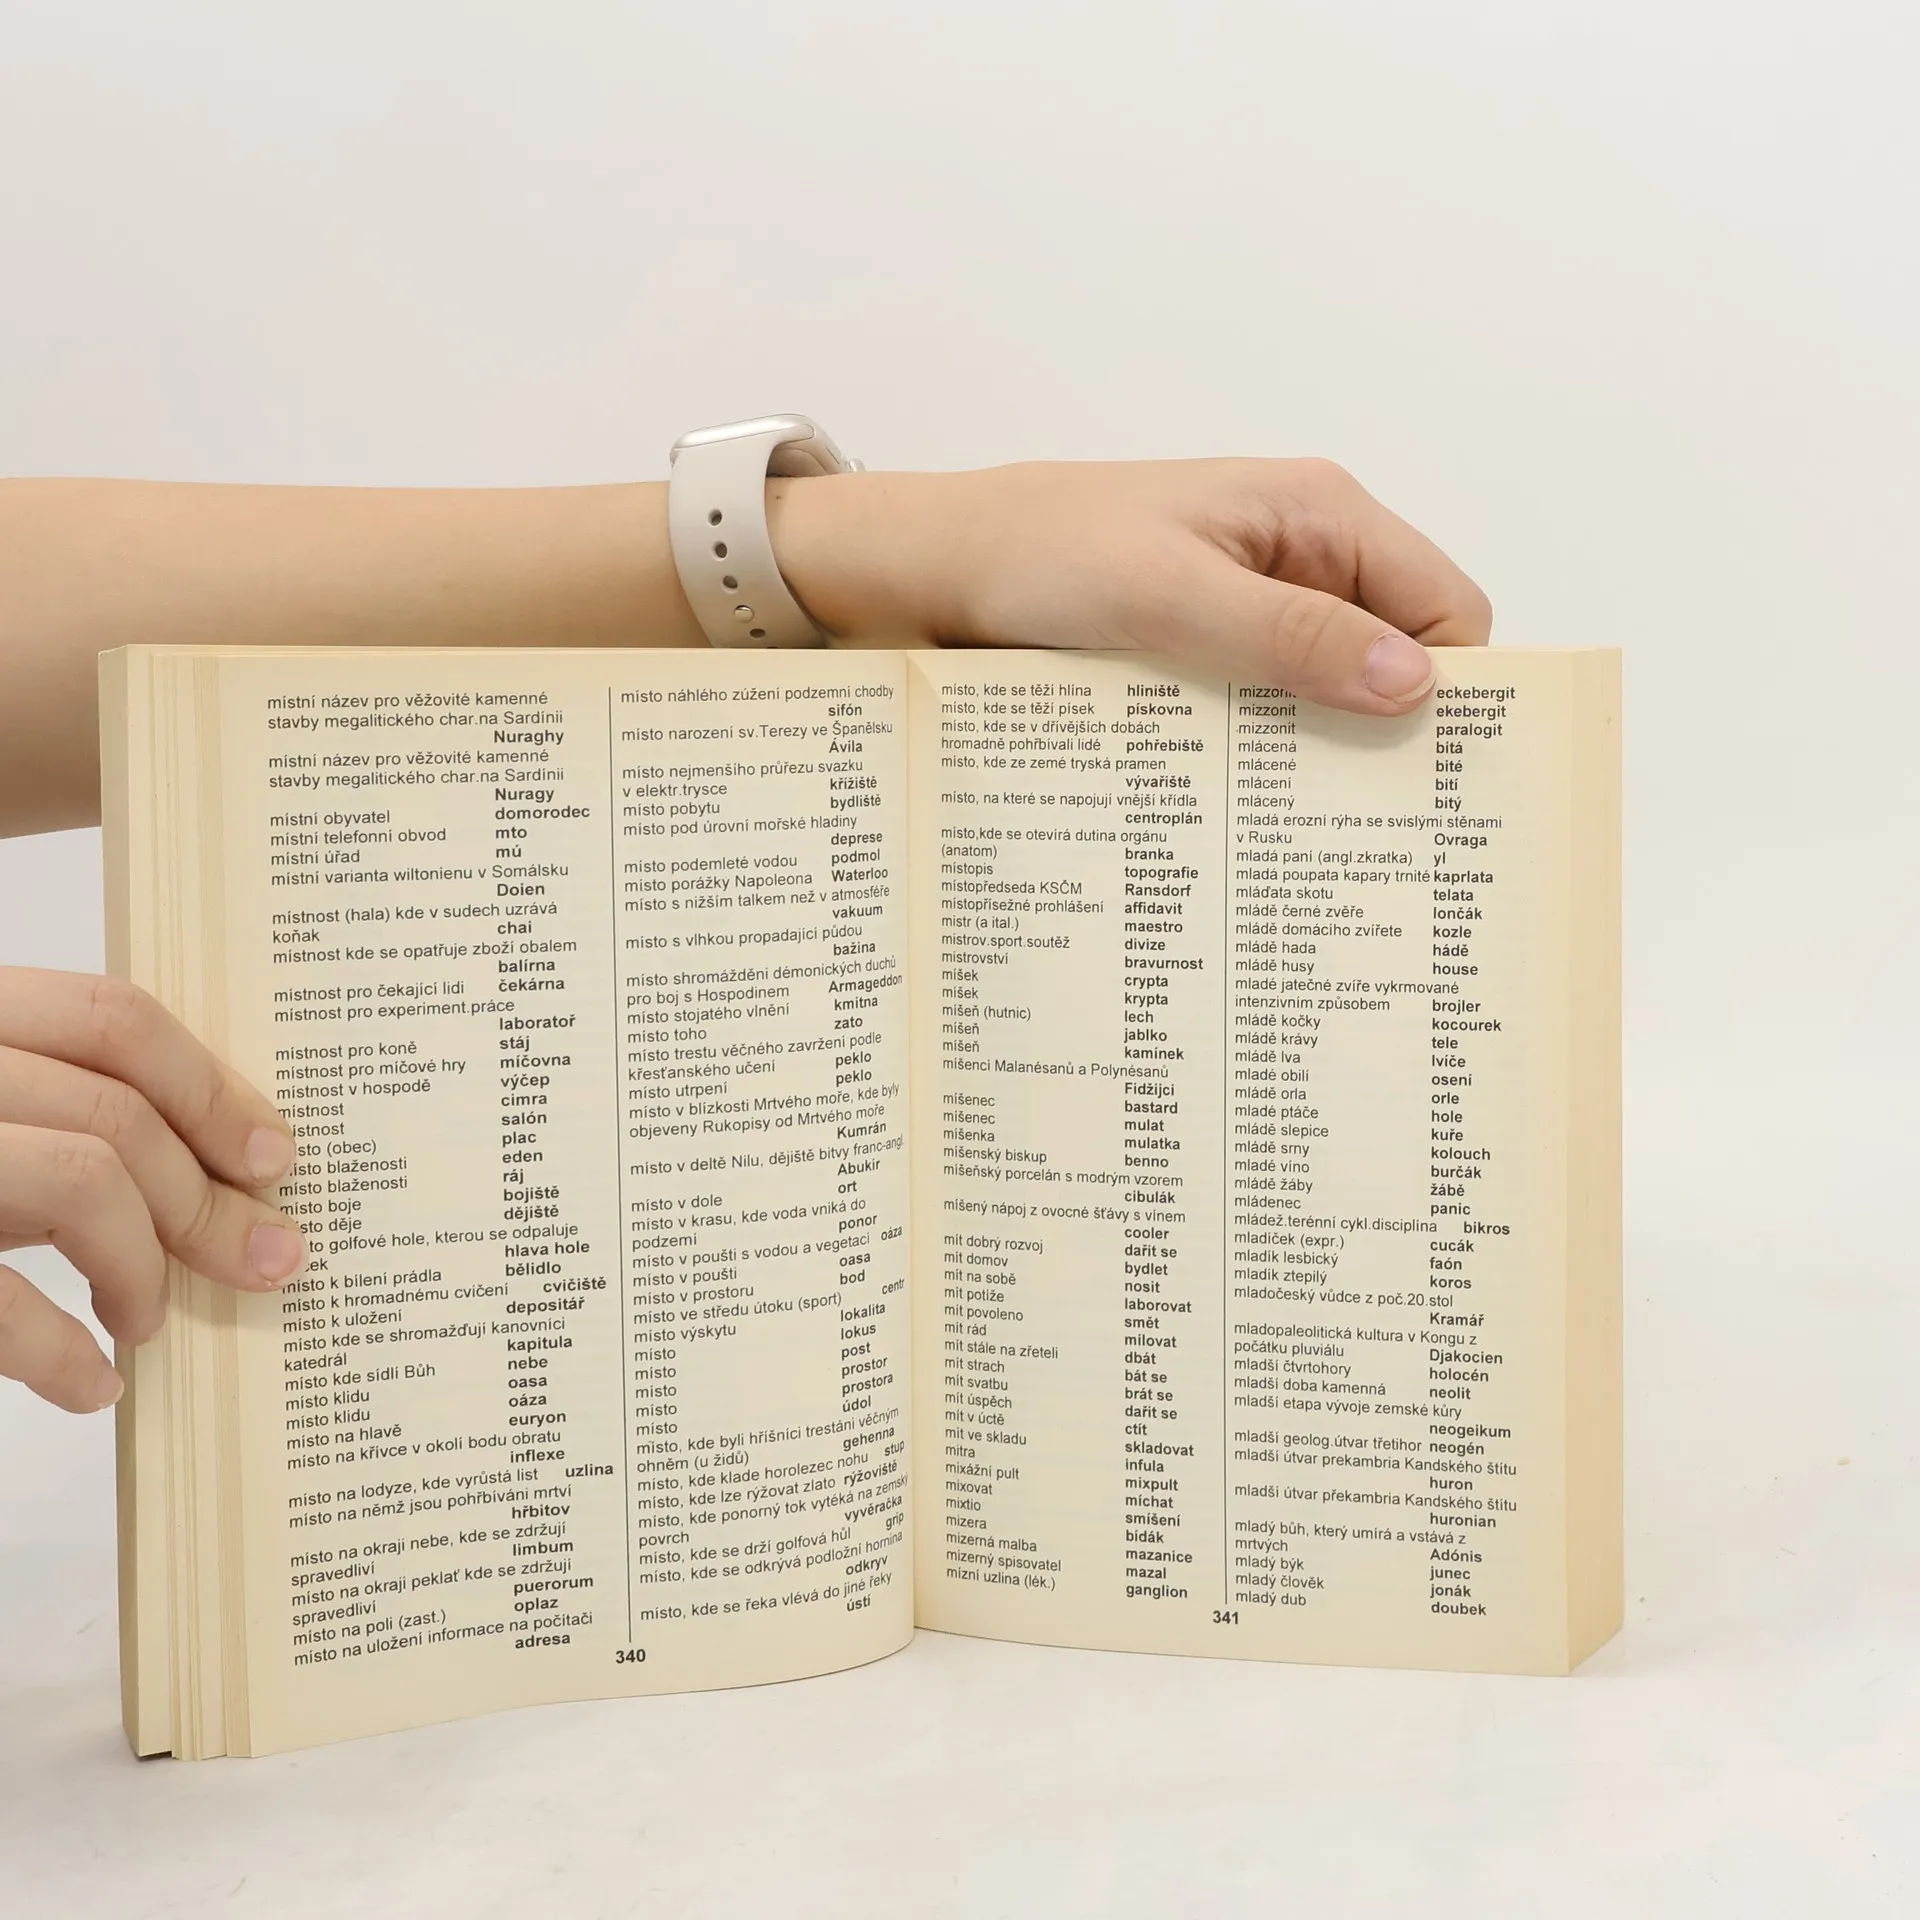 místní název pro věžovité kamenné
stavby megalitického char.na Sardínii
Nuraghy
místní název pro věžovité kamenné
stavby megalitického char.na Sardínii
Nuragy
místní obyvatel domorodec
místní telefonní obvod mto
místní úřad mú
místní varianta wiltonienu v Somálsku
Doien
místnost (hala) kde v sudech uzrává
koňak chai
místnost kde se opatřuje zboží obalem
balírna
místnost pro čekající lidi čekárna
místnost pro experiment.práce
laboratoř
místnost pro koně stáj
místnost pro míčové hry míčovna
místnost v hospodě výčep
místnost cimra
ístnost salón
sto (obec) plac
ísto blaženosti eden
místo blaženosti ráj
místo boje bojiště
sto děje dějiště
to golfové hole, kterou se odpaluje
ek hlava hole
místo k bílení prádla bělidlo
místo k hromadnému cvičení cvičiště
místo k uložení depositář
místo kde se shromažďují kanovníci
katedrál kapitula
místo kde sídlí Bůh nebe
místo klidu oasa
místo klidu oáza
místo na hlavě euryon
místo na křivce v okolí bodu obratu
inflexe
místo na lodyze, kde vyrůstá list uzlina
místo na němž jsou pohřbíváni mrtví
hřbitov
místo na okraji nebe, kde se zdržují
spravedliví limbum
místo na okraji peklať kde se zdržují
spravedliví puerorum
místo na poli (zast.) oplaz
místo na uložení informace na počítači
adresa
místo náhlého zúžení podzemní chodby
sifón
místo narození sv.Terezy ve Španělsku
Ávila
místo nejmenšího průřezu svazku
v elektr.trysce křížiště
místo pobytu bydliště
místo pod úrovní mořské hladiny
deprese
místo podemleté vodou podmol
místo porážky Napoleona Waterloo
místo s nižším talkem než v atmosféře
vakuum
místo s vlhkou propadající půdou
bažina
místo shromáždění démonických duchů
pro boj s Hospodinem Armageddon
místo stojatého vlnění kmitna
místo toho zato
místo trestu věčného zavržení podle
křesťanského učení peklo
místo utrpení peklo
místo v blízkosti Mrtvého moře, kde byly
objeveny Rukopisy od Mrtvého moře
Kumrán
místo v deltě Nilu, dějiště bitvy franc-angl.
Abukir
místo v dole ort
místo v krasu, kde voda vniká do
podzemí ponor
místo v poušti s vodou a vegetací oáza
místo v poušti oasa
místo v prostoru bod
místo ve středu útoku (sport) centr
místo výskytu lokalita
místo lokus
místo post
místo prostor
místo prostora
místo údol
místo, kde byli hříšníci trestáni věčným
ohněm (u židů) gehenna
místo, kde klade horolezec nohu stup
místo, kde lze rýžovat zlato rýžoviště
místo, kde ponorný tok vytéká na zemský
povrch vyvěračka
místo, kde se drží golfová hůl grip
místo, kde se odkrývá podložní hornina
odkryv
místo, kde se řeka vlévá do jiné řeky
ústí
340
místo, kde se těží hlína hliniště
místo, kde se těží písek pískovna
místo, kde se v dřívějších dobách
hromadně pohřbívali lidé pohřebiště
místo, kde ze země tryská pramen
vývařiště
místo, na které se napojují vnější křídla
centroplán
místo,kde se otevírá dutina orgánu
(anatom) branka
místopis topografie
místopředseda KSČM Ransdorf
místopřísežné prohlášení affidavit
mistr (a ital.) maestro
mistrov.sport.soutěž divize
mistrovství bravurnost
míšek crypta
míšek krypta
míšeň (hutnic) lech
míšeň jablko
míšeň kamínek
míšenci Malanésanů a Polynésanů
Fidžijci
míšenec bastard
míšenec mulat
míšenka mulatka
míšenský biskup benno
míšeňský porcelán s modrým vzorem
cibulák
míšený nápoj z ovocné šťávy s vínem
cooler
mít dobrý rozvoj dařit se
mít domov bydlet
mít na sobě nosit
mít potíže laborovat
mít povoleno smět
mít rád milovat
mít stále na zřeteli dbát
mít strach bát se
mít svatbu brát se
mít úspěch dařit se
mít v úctě ctít
mít ve skladu skladovat
mitra infula
mixážní pult mixpult
mixovat míchat
mixtio smíšení
mizera bídák
mizerná malba mazanice
mizerný spisovatel mazal
mízní uzlina (lék.) ganglion
eckebergit
mizzonit ekebergit
mizzonit paralogit
mlácená bitá
mlácené bité
mlácení bití
mlácený bitý
mladá erozní rýha se svislými stěnami
v Rusku Ovraga
mladá paní (angl.zkratka) yl
mladá poupata kapary trnité kaprlata
mláďata skotu telata
mládě černé zvěře lončák
mládě domácího zvířete kozle
mládě hada hádě
mládě husy house
mladé jatečné zvíře vykrmované
intenzivním způsobem brojler
mládě kočky kocourek
mládě krávy tele
mládě lva lvíče
mladé obilí osení
mládě orla orle
mladé ptáče hole
mládě slepice kuře
mládě srny kolouch
mladé víno burčák
mládě žáby žábě
mládenec panic
mládež.terénní cykl.disciplína bikros
mladíček (expr.) cucák
mladík lesbický faón
mladík ztepilý koros
mladočeský vůdce z poč.20.stol
Kramář
mladopaleolitická kultura v Kongu z
počátku pluviálu Djakocien
mladší čtvrtohory holocén
mladší doba kamenná neolit
mladší etapa vývoje zemské kůry
neogeikum
mladší geolog.útvar třetihor neogén
mladší útvar prekambria Kandského štítu
huron
mladší útvar překambria Kandského štítu
huronian
mladý bůh, který umírá a vstává z
mrtvých Adónis
mladý býk junec
mladý člověk jonák
mladý dub doubek
341